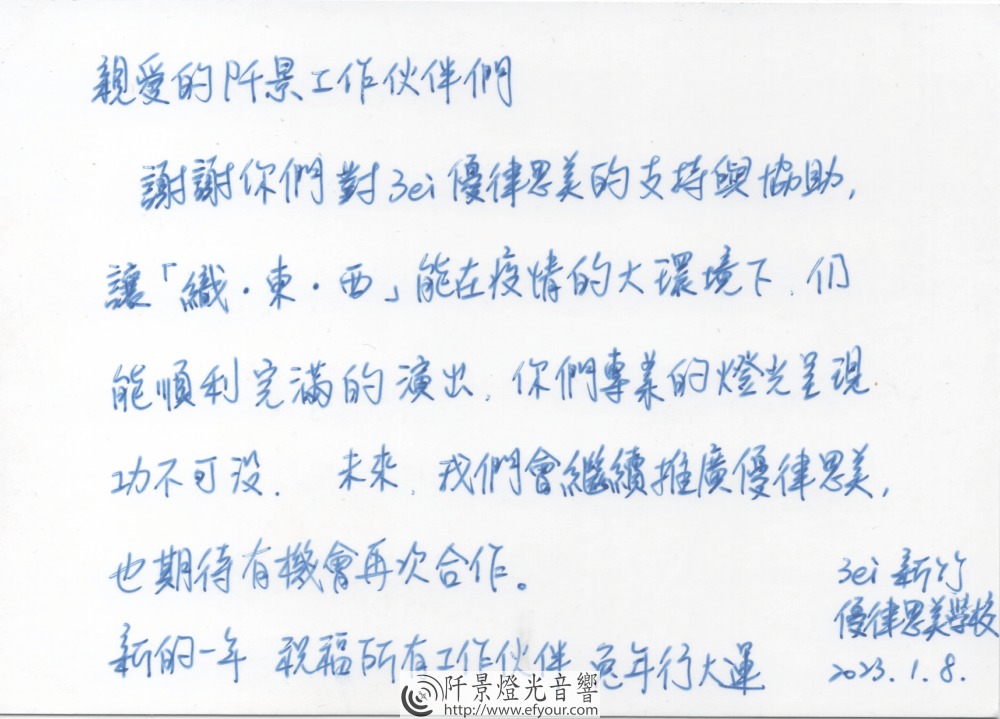 親愛的阡景工作伙伴們
謝謝你們對3ei優律思美的支持與協助,
讓「織·東·西」能在疫情的大環境下,仍
能順利完滿的演出,你們專業的燈光呈現
功不可沒. 未來,我們會繼續推廣優律思美,
也期待有機會再次合作。
新的一年 祝福所有工作伙伴 兔年行大運
3ei 新竹
優律思美學校
2023.1.8.
阡景燈光音響
http://www.efyour.com/